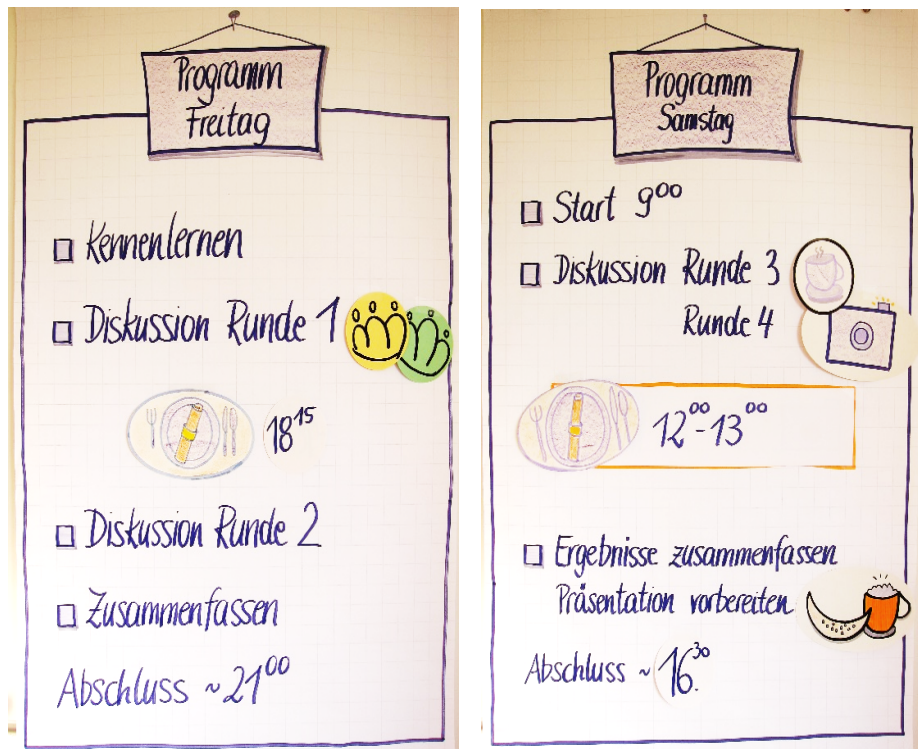 Programm
Freitag
Kennenlernen
Diskussion Runde 1
18¹⁵
Diskussion Runde 2
Zusammenfassen
Abschluss ~ 21⁰⁰
Programm
Samstag
Start 9⁰⁰
Diskussion Runde 3
Runde 4
12⁰⁰-13⁰⁰
Ergebnisse zusammenfassen
Präsentation vorbereiten
Abschluss ~ 16³⁰